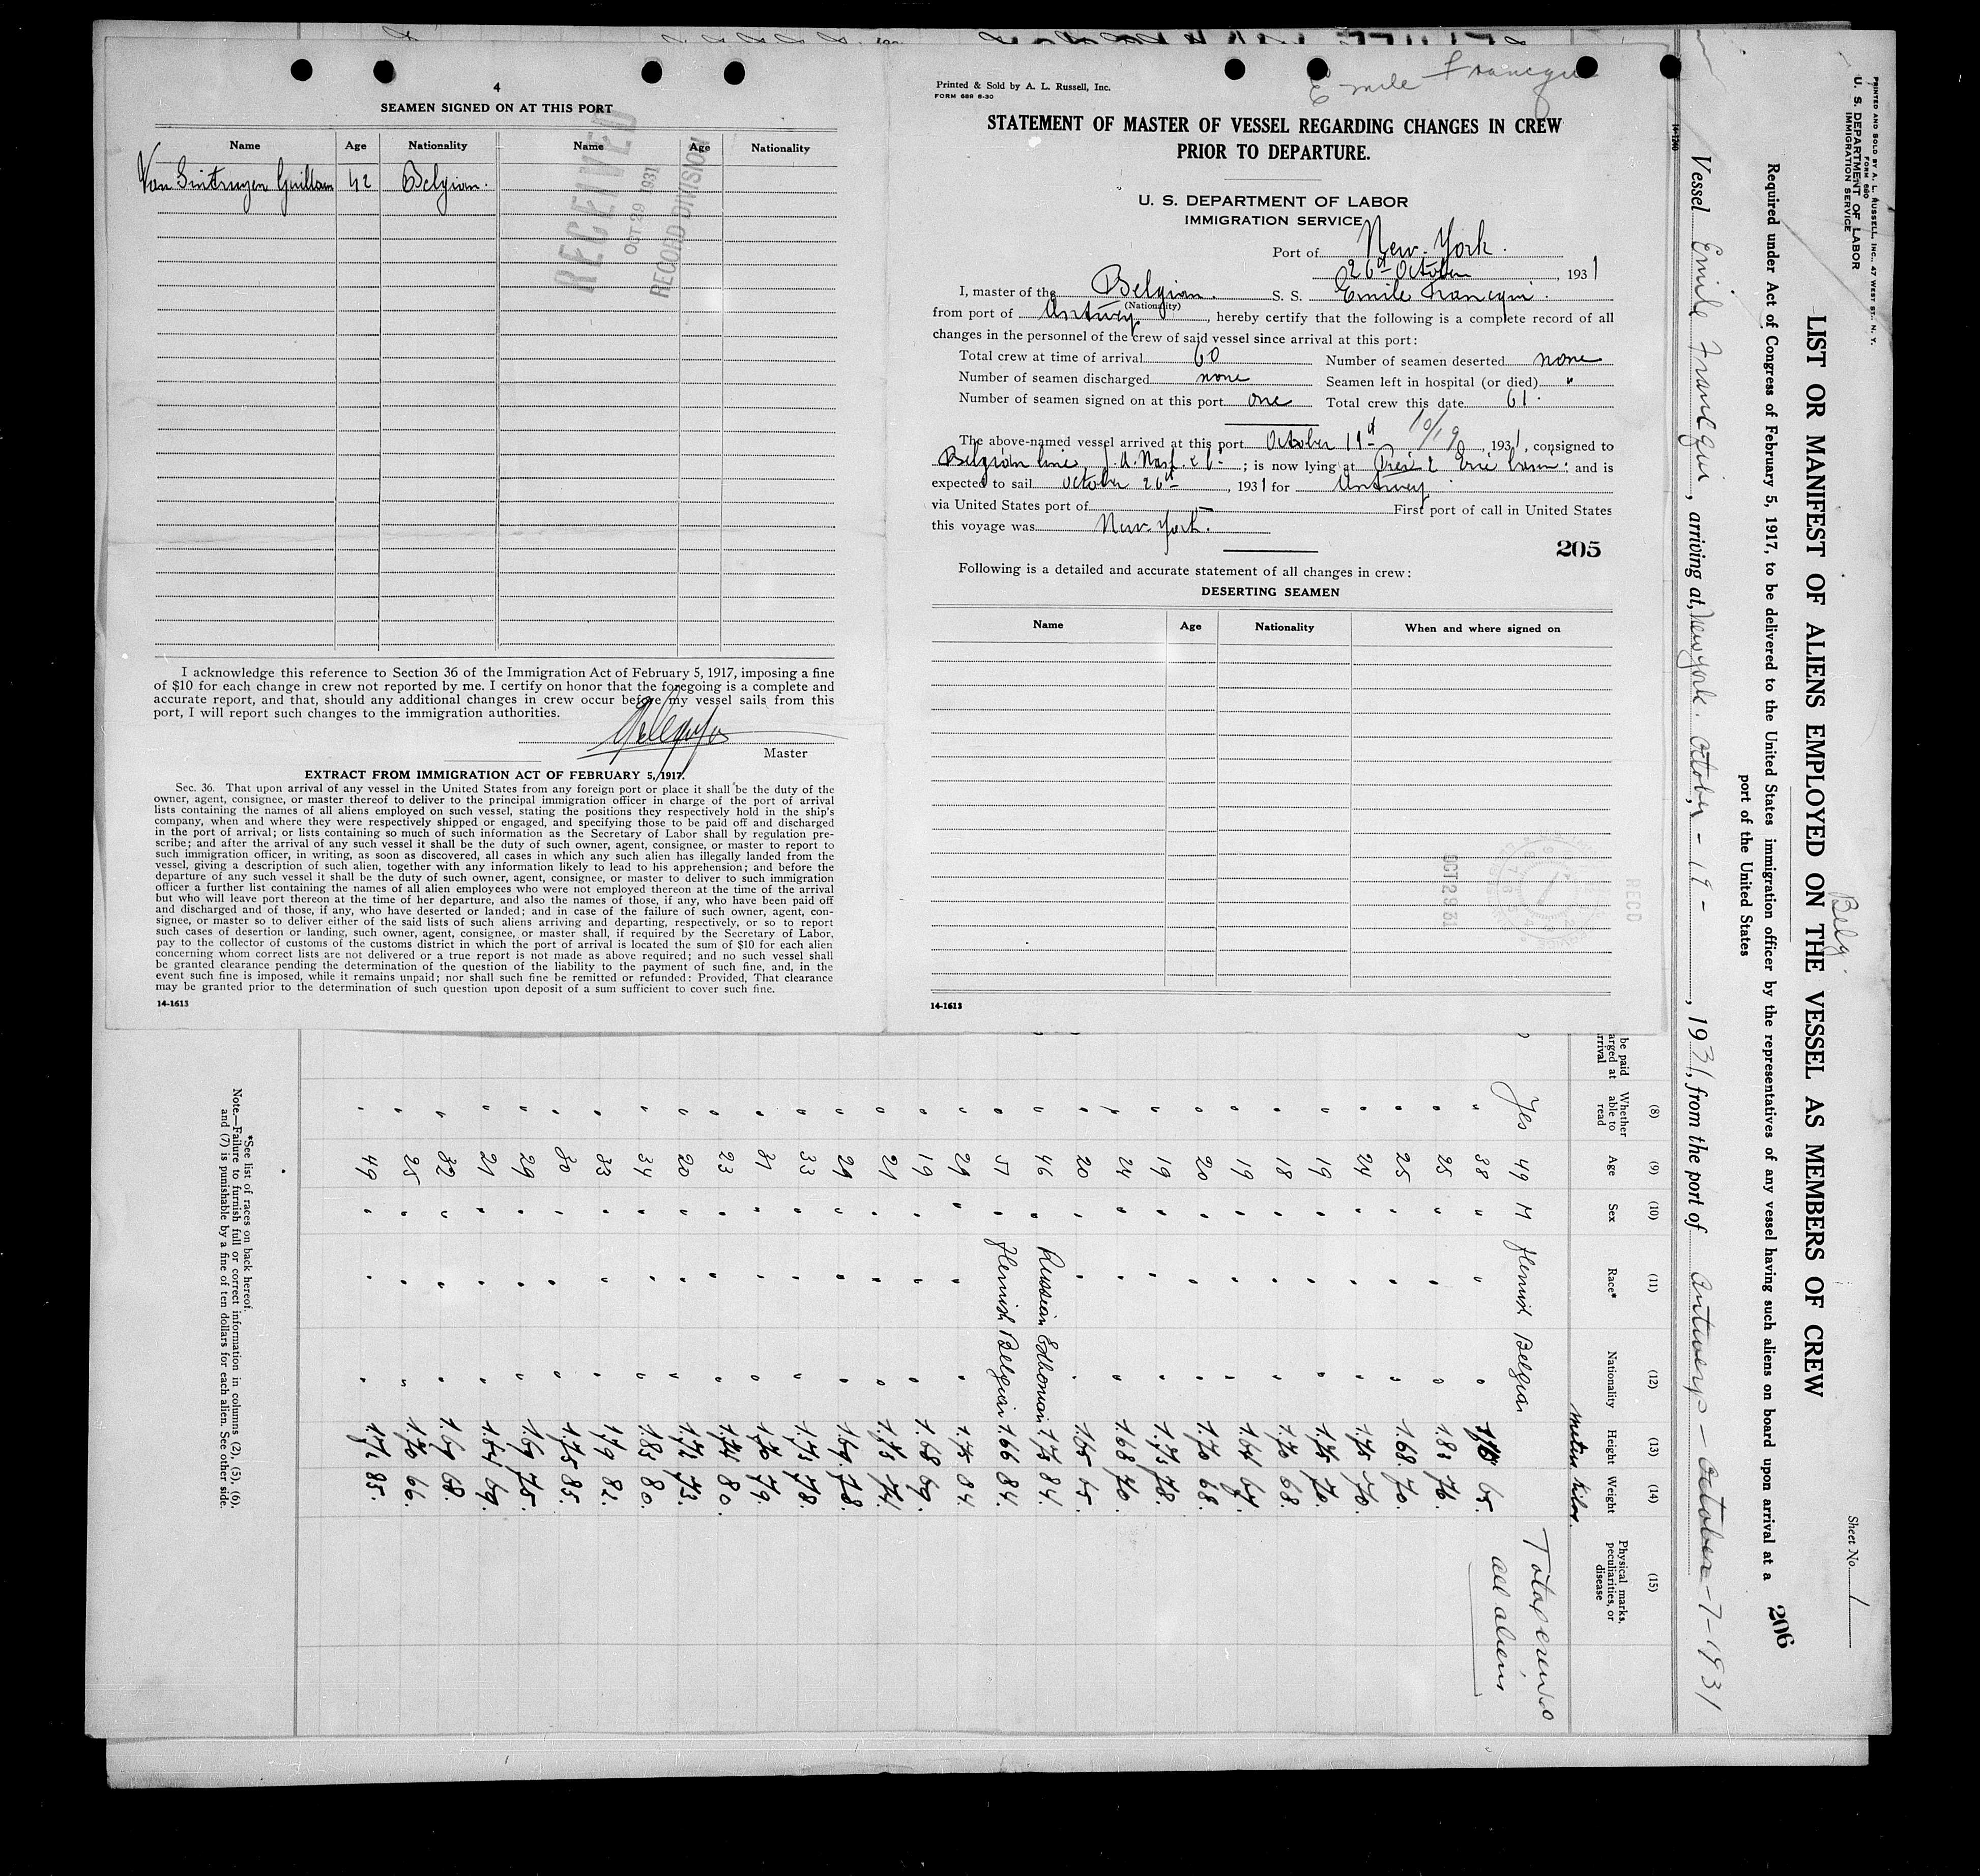 4
SEAMEN SIGNED ON AT THIS PORT
Name Age Nationality Name Age Nationality
Van Guillam 42 Belgian.
RECEIVED
OCT 29 1931
RECORD DIVISION
I acknowledge this reference to Section 36 of the Immigration Act of February 5, 1917, imposing a fine
of $10 for each change in crew not reported by me. I certify on honor that the foregoing is a complete and
accurate report, and that, should any additional changes in crew occur before my vessel sails from this
port, I will report such changes to the immigration authorities.
Master
EXTRACT FROM IMMIGRATION ACT OF FEBRUARY 5, 1917.
Sec. 36. That upon arrival of any vessel in the United States from any foreign port or place it shall be the duty of the
owner, agent, consignee, or master thereof to deliver to the principal immigration officer in charge of the port of arrival
lists containing the names of all aliens employed on such vessel, stating the positions they respectively hold in the ship's
company, when and where they were respectively shipped or engaged, and specifying those to be paid off and discharged
in the port of arrival; or lists containing so much of such information as the Secretary of Labor shall by regulation pre-
scribe; and after the arrival of any such vessel it shall be the duty of such owner, agent, consignee, or master to report to
such immigration officer, in writing, as soon as discovered, all cases in which any such alien has illegally landed from the
vessel, giving a description of such alien, together with any information likely to lead to his apprehension; and before the
departure of any such vessel it shall be the duty of such owner, agent, consignee, or master to deliver to such immigration
officer a further list containing the names of all alien employees who were not employed thereon at the time of the arrival
but who will leave port thereon at the time of her departure, and also the names of those, if any, who have been paid off
and discharged and of those, if any, who have deserted or landed; and in case of the failure of such owner, agent, con-
signee, or master so to deliver either of the said lists of such aliens arriving and departing, respectively, or so to report
such cases of desertion or landing, such owner, agent, consignee, or master shall, if required by the Secretary of Labor,
pay to the collector of customs of the customs district in which the port of arrival is located the sum of $10 for each alien
concerning whom correct lists are not delivered or a true report is not made as above required; and no such vessel shall
be granted clearance pending the determination of the question of the liability to the payment of such fine, and, in the
event such fine is imposed, while it remains unpaid; nor shall such fine be remitted or refunded: Provided, That clearance
may be granted prior to the determination of such question upon deposit of a sum sufficient to cover such fine.
14-1613
Printed & Sold by A. L. Russell, Inc.
FORM 689 8-30
Emile Francqui
STATEMENT OF MASTER OF VESSEL REGARDING CHANGES IN CREW
PRIOR TO DEPARTURE.
U. S. DEPARTMENT OF LABOR
IMMIGRATION SERVICE
Port of New-York.
26th October, 1931
I, master of the Belgian. S. S. Emile Francqui.
(Nationality)
from port of Antwerp, hereby certify that the following is a complete record of all
changes in the personnel of the crew of said vessel since arrival at this port:
Total crew at time of arrival 60 Number of seamen deserted none
Number of seamen discharged none Seamen left in hospital (or died) "
Number of seamen signed on at this port one Total crew this date 61.
The above-named vessel arrived at this port October 10/19, 1931, consigned to
Belgian line, ; is now lying at 2 Erie ; and is
expected to sail October 26th, 1931 for Antwerp
via United States port of — First port of call in United States
this voyage was New-York.
205
Following is a detailed and accurate statement of all changes in crew:
DESERTING SEAMEN
Name Age Nationality When and where signed on
RECD
OCT 29 31
14-1613
PRINTED AND SOLD BY A. L. RUSSELL, INC., 47 WEST ST., N. Y.
FORM 680
U. S. DEPARTMENT OF LABOR
IMMIGRATION SERVICE
Sheet No. 1
Belg.
LIST OR MANIFEST OF ALIENS EMPLOYED ON THE VESSEL AS MEMBERS OF CREW
206
Required under Act of Congress of February 5, 1917, to be delivered to the United States immigration officer by the representatives of any vessel having such aliens on board upon arrival at a
port of the United States
Vessel Emile Francqui, arriving at, Newyork. October - 19 -, 1931, from the port of Antwerp - October - 7 - 1931
14-1240
be paid
arged at
rrival
(8) (9) (10) (11) (12) (13) (14) (15)
Whether able to read Age Sex Race* Nationality Height Weight Physical marks, peculiarities, or disease
meters kilos.
Yes 49 M flemish Belgian
" 38 " " " 65
" 25 " " " 1.83 76.
" 25 " " " 1.68 70.
" 24 " " " 1.75 70.
" 19 " " " 1.75 70.
" 18 " " " 1.70 68.
" 19 " " " 1.64 67.
" 20 " " " 1.70 68.
" 19 " " " 1.73 78.
" 24 " " " 1.68 70.
" 20 " " " 1.65 65.
" 46 " Russian Esthonian 1.73 84.
" 51 " flemish Belgian 1.66 84.
" 29 " " " 1.75 84.
" 19 " " " 1.68 69.
" 21 " " " 1.73 74.
" 29 " " " 1.69 78.
" 33 " " " 1.73 78.
" 31 " " " 1.70 79.
" 23 " " " 1.74 80.
" 20 " " " 1.72 73.
" 34 " " " 1.83 80.
" 33 " " " 1.79 82.
" 30 " " " 1.75 85.
" 29 " " " 1.69 75.
" 21 " " " 1.64 69.
" 32 " " " 1.69 68.
" 25 " " " 1.70 66.
" 49 " " " 1.71 85.
Total crew 60
all aliens
*See list of races on back hereof.
Note.—Failure to furnish full or correct information in columns (2), (5), (6),
and (7) is punishable by a fine of ten dollars for each alien. See other side.